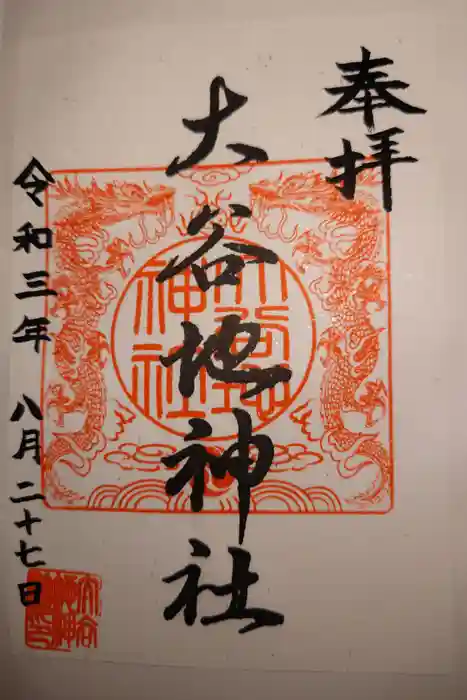 奉拝
大谷地神社
令和三年 八月二十七日
大谷地神社